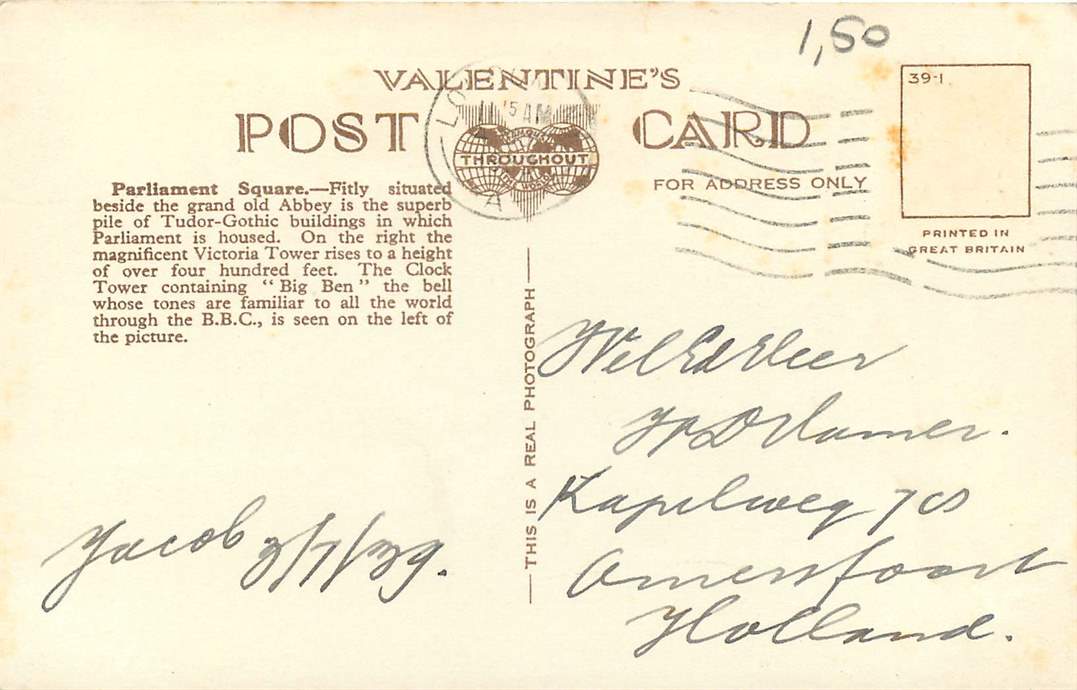 1,50
VALENTINE'S
POST CARD
LO
5 AM
A
THROUGHOUT
THE WORLD
39-1
FOR ADDRESS ONLY
PRINTED IN
GREAT BRITAIN
Parliament Square.—Fitly situated
beside the grand old Abbey is the superb
pile of Tudor-Gothic buildings in which
Parliament is housed. On the right the
magnificent Victoria Tower rises to a height
of over four hundred feet. The Clock
Tower containing “Big Ben” the bell
whose tones are familiar to all the world
through the B.B.C., is seen on the left of
the picture.
THIS IS A REAL PHOTOGRAPH
Wel Ed Heer
Kapelweg 70
Amersfoort
Holland.
Jacob 3/7/39.